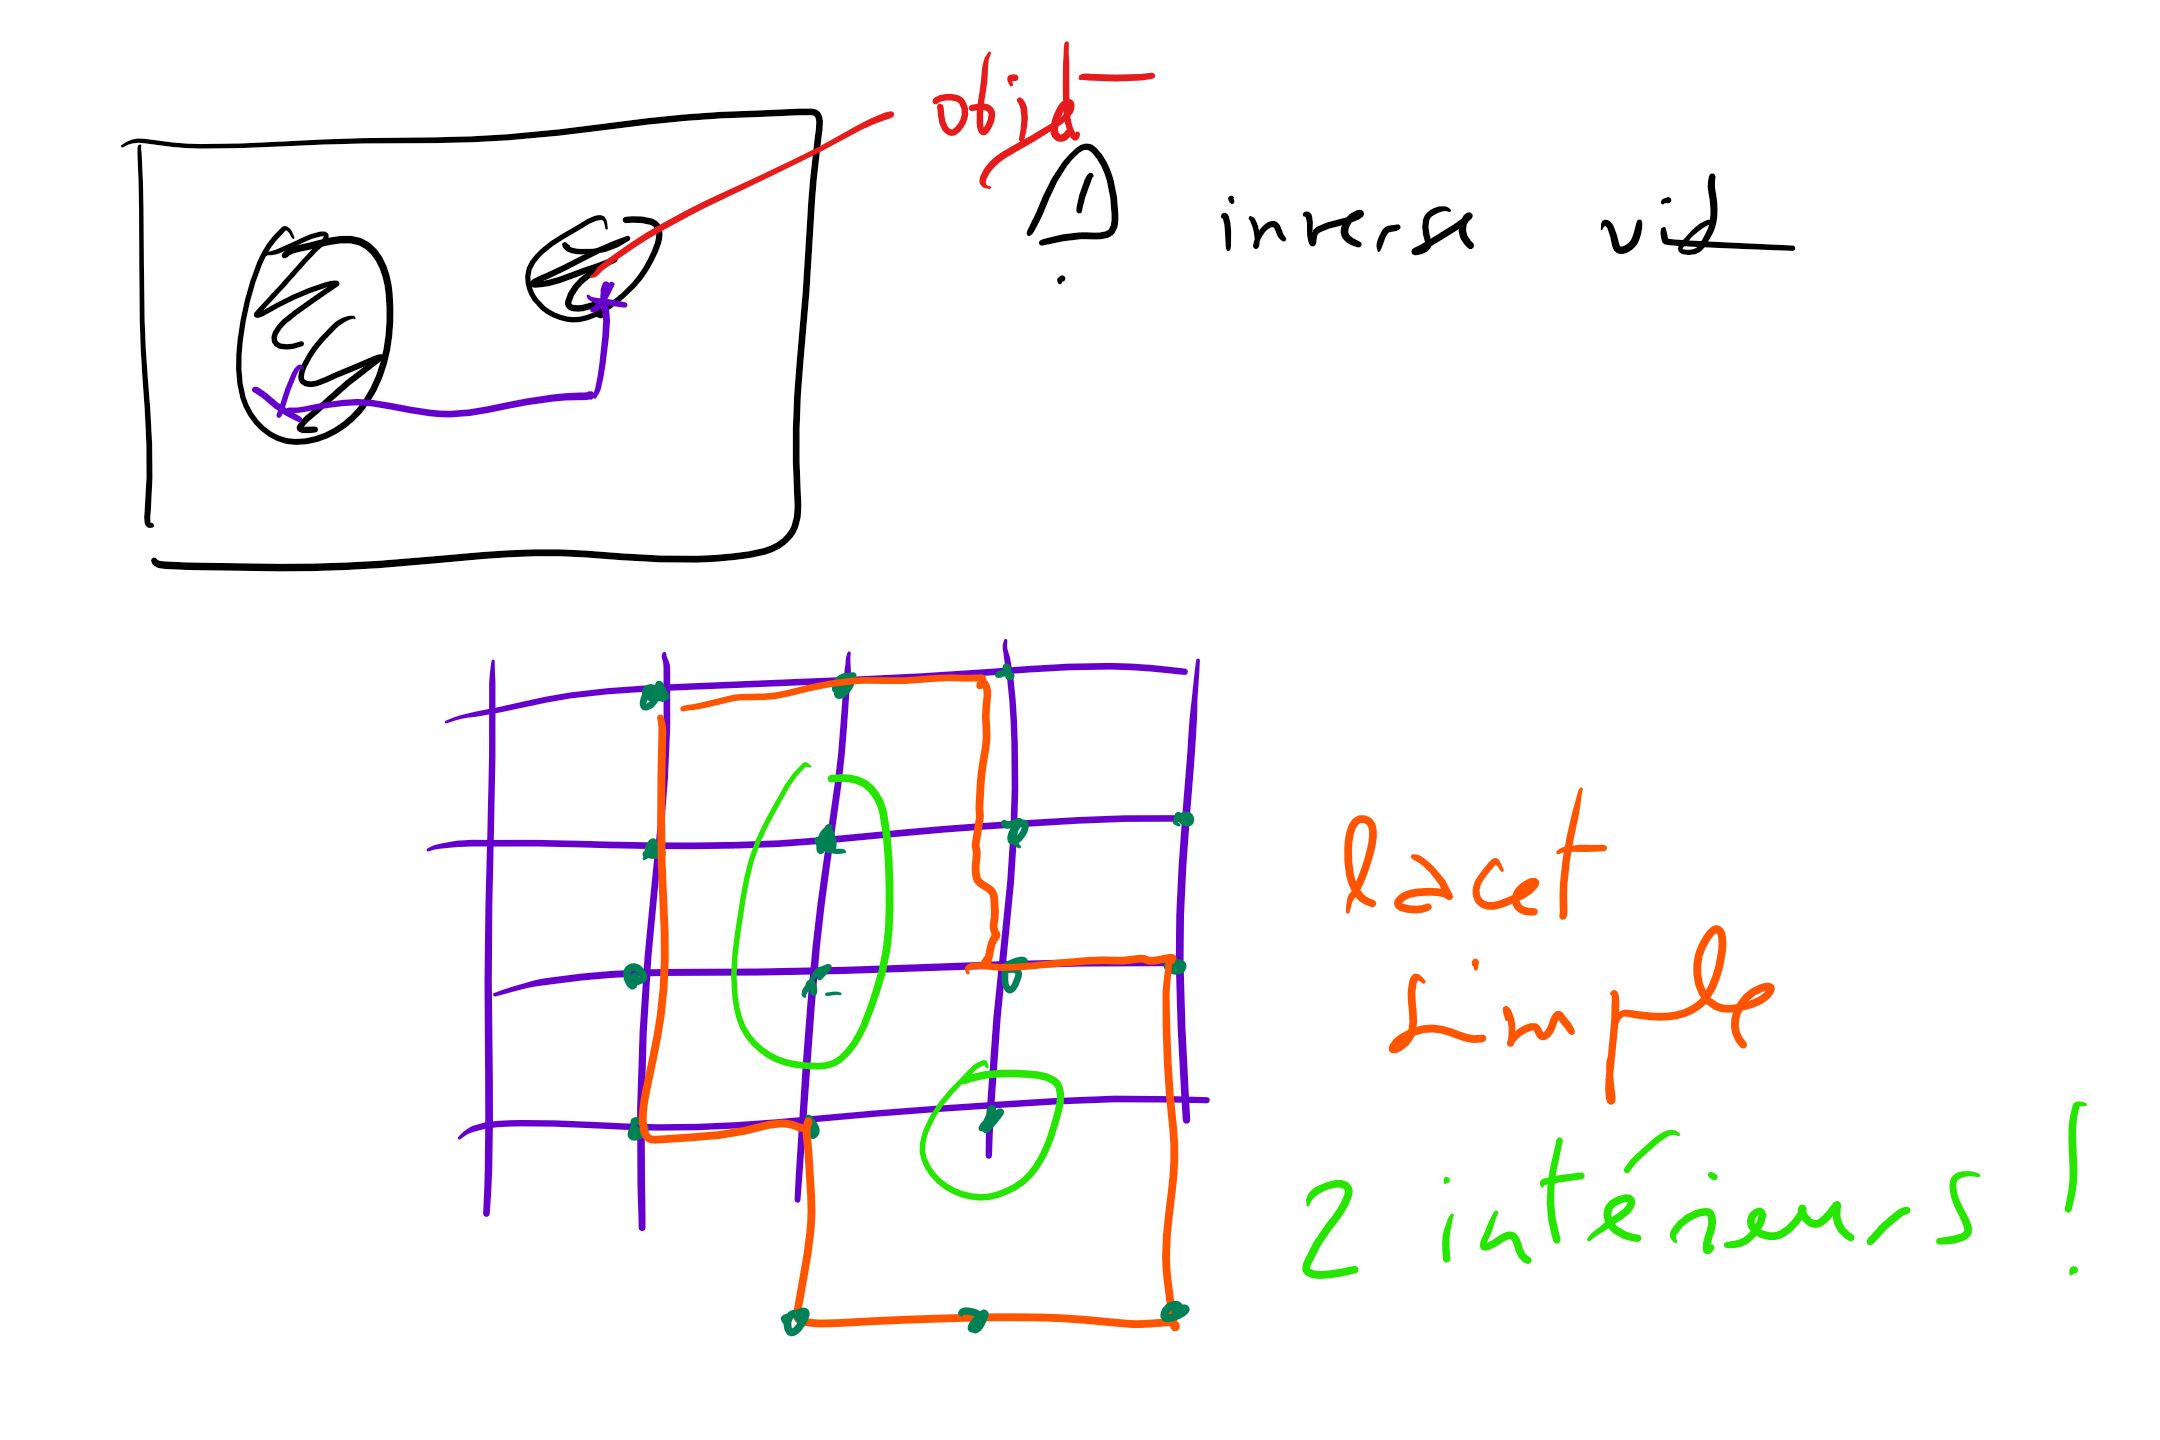 objet
inverse vid
lacet
simple
2 intérieurs !